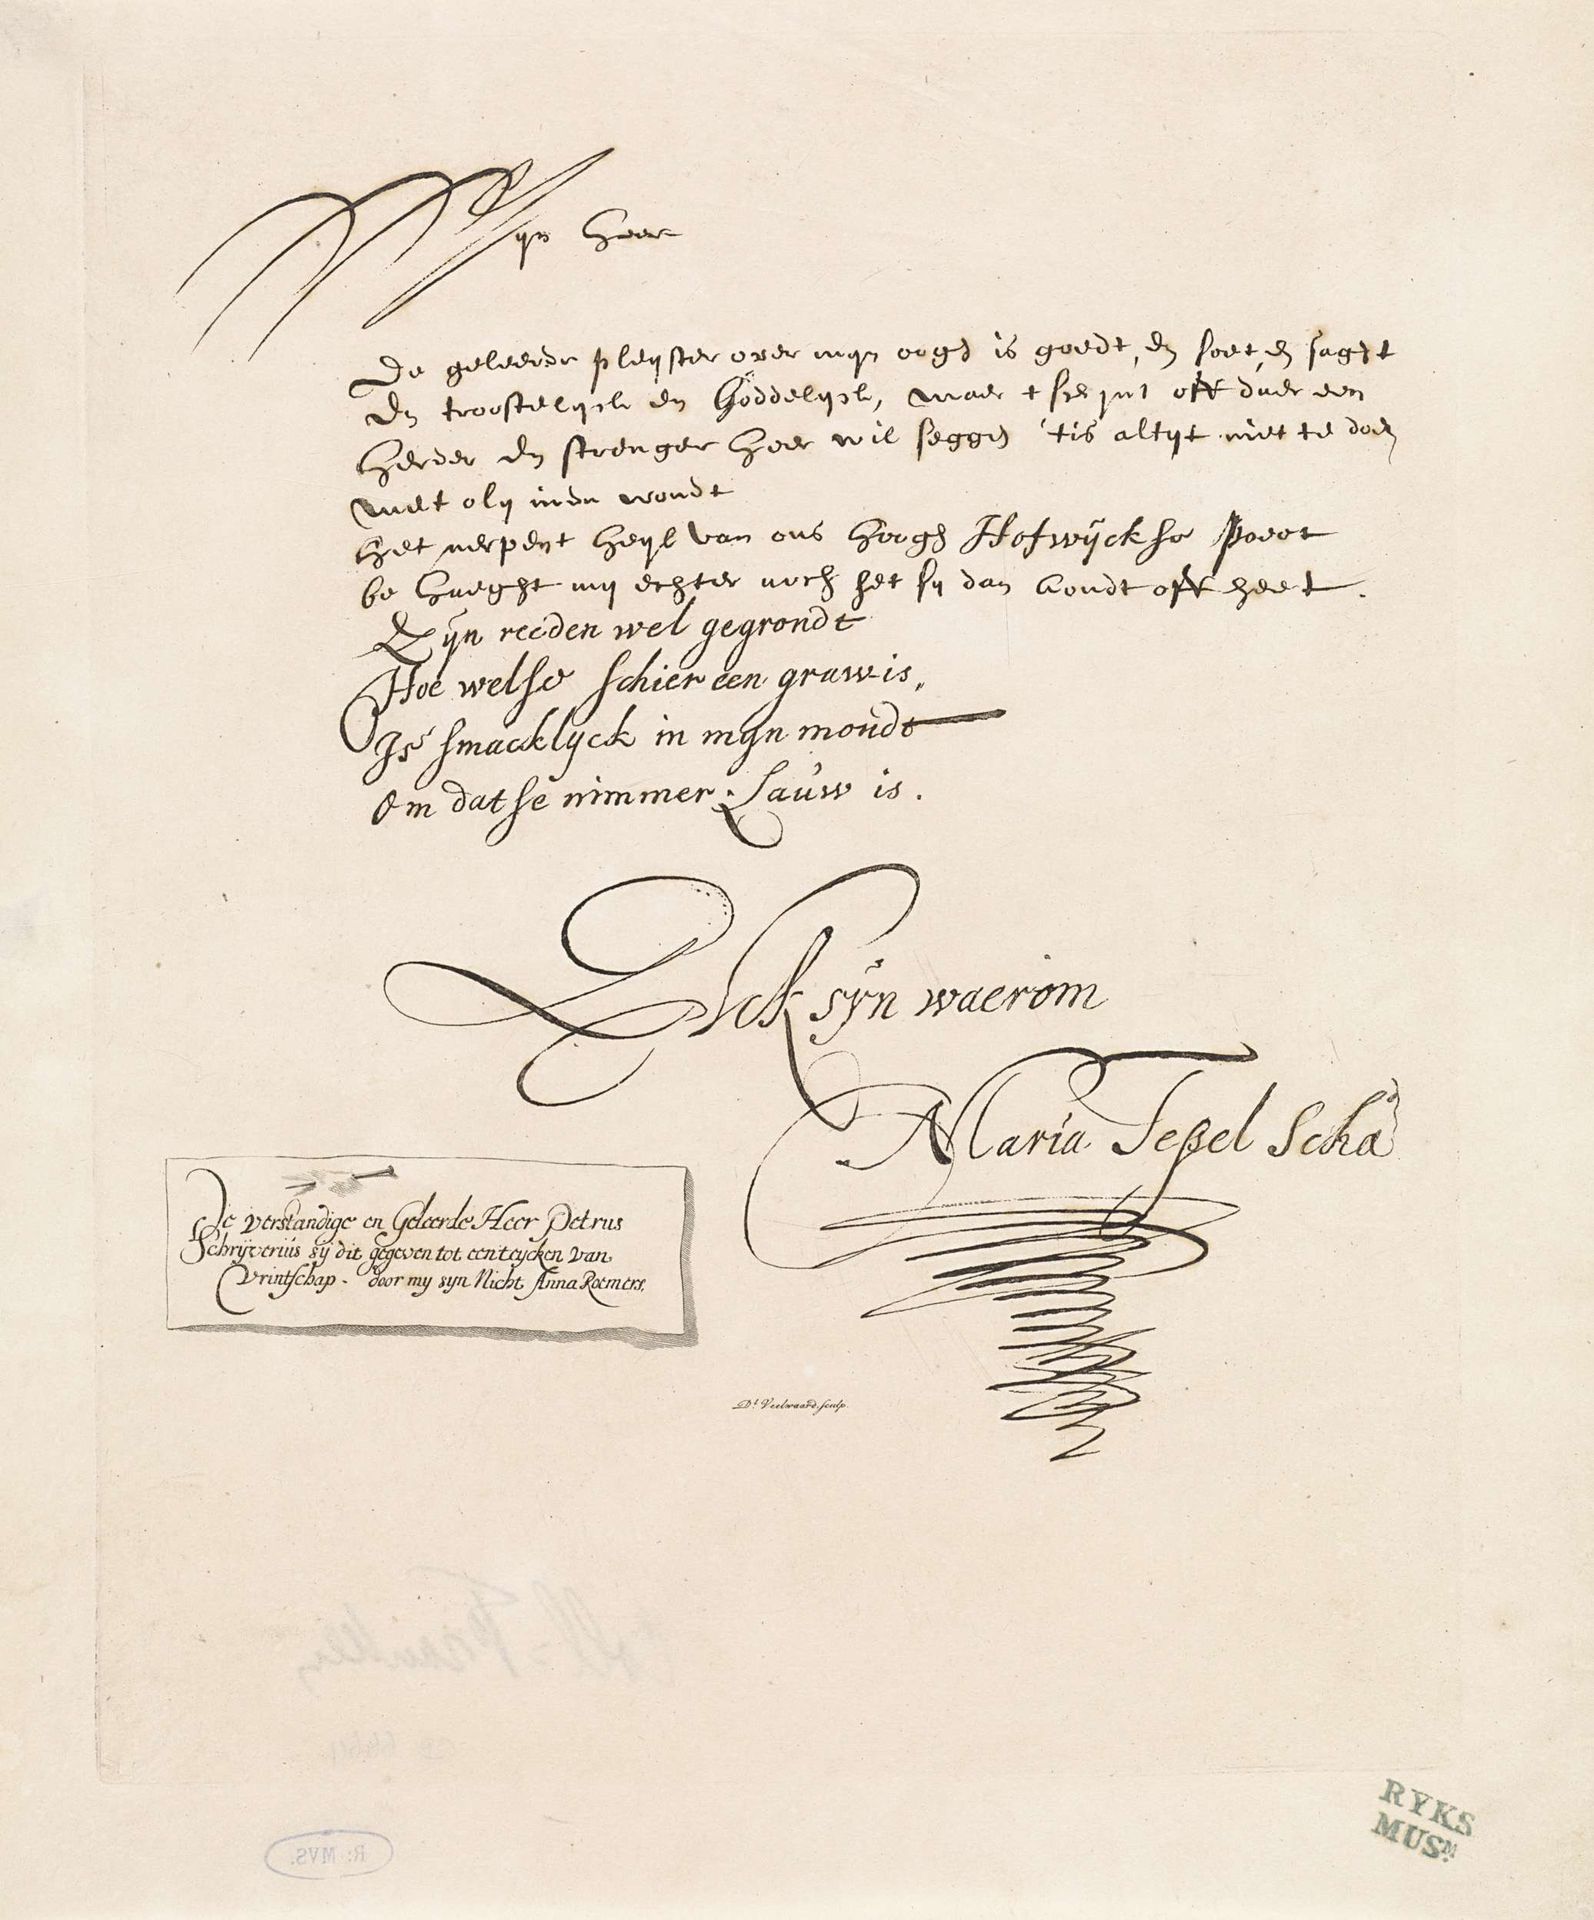 Mijn heer
De geleerde pleijster over mijn oogen is goedt, en soet, en sagt
En troostelijck en Goddelijck, maer t schijnt off daer een
herder en strenger heer wil seggen 'tis altijt niet te doen
met olij inden wondt
het heijl van ons hoogh Hofwijckse Poeet
be haeght mij echter noch het sij dan koudt off heet.
Zijn reeden wel gegrondt
Hoe welse schier een grauw is,
Is smacklijck in mijn mondt
Om dat se nimmer Lauw is.
Elck syn waerom
Maria Teßel Scha
De verstandige en Geleerde Heer Petrus
Schrijverius sy dit gegeven tot een teycken van
Vrintschap. door my syn Nicht Anna Roemers.
D. Veelwaard, sculp.
R: MVS.
RYKS
MUS.M